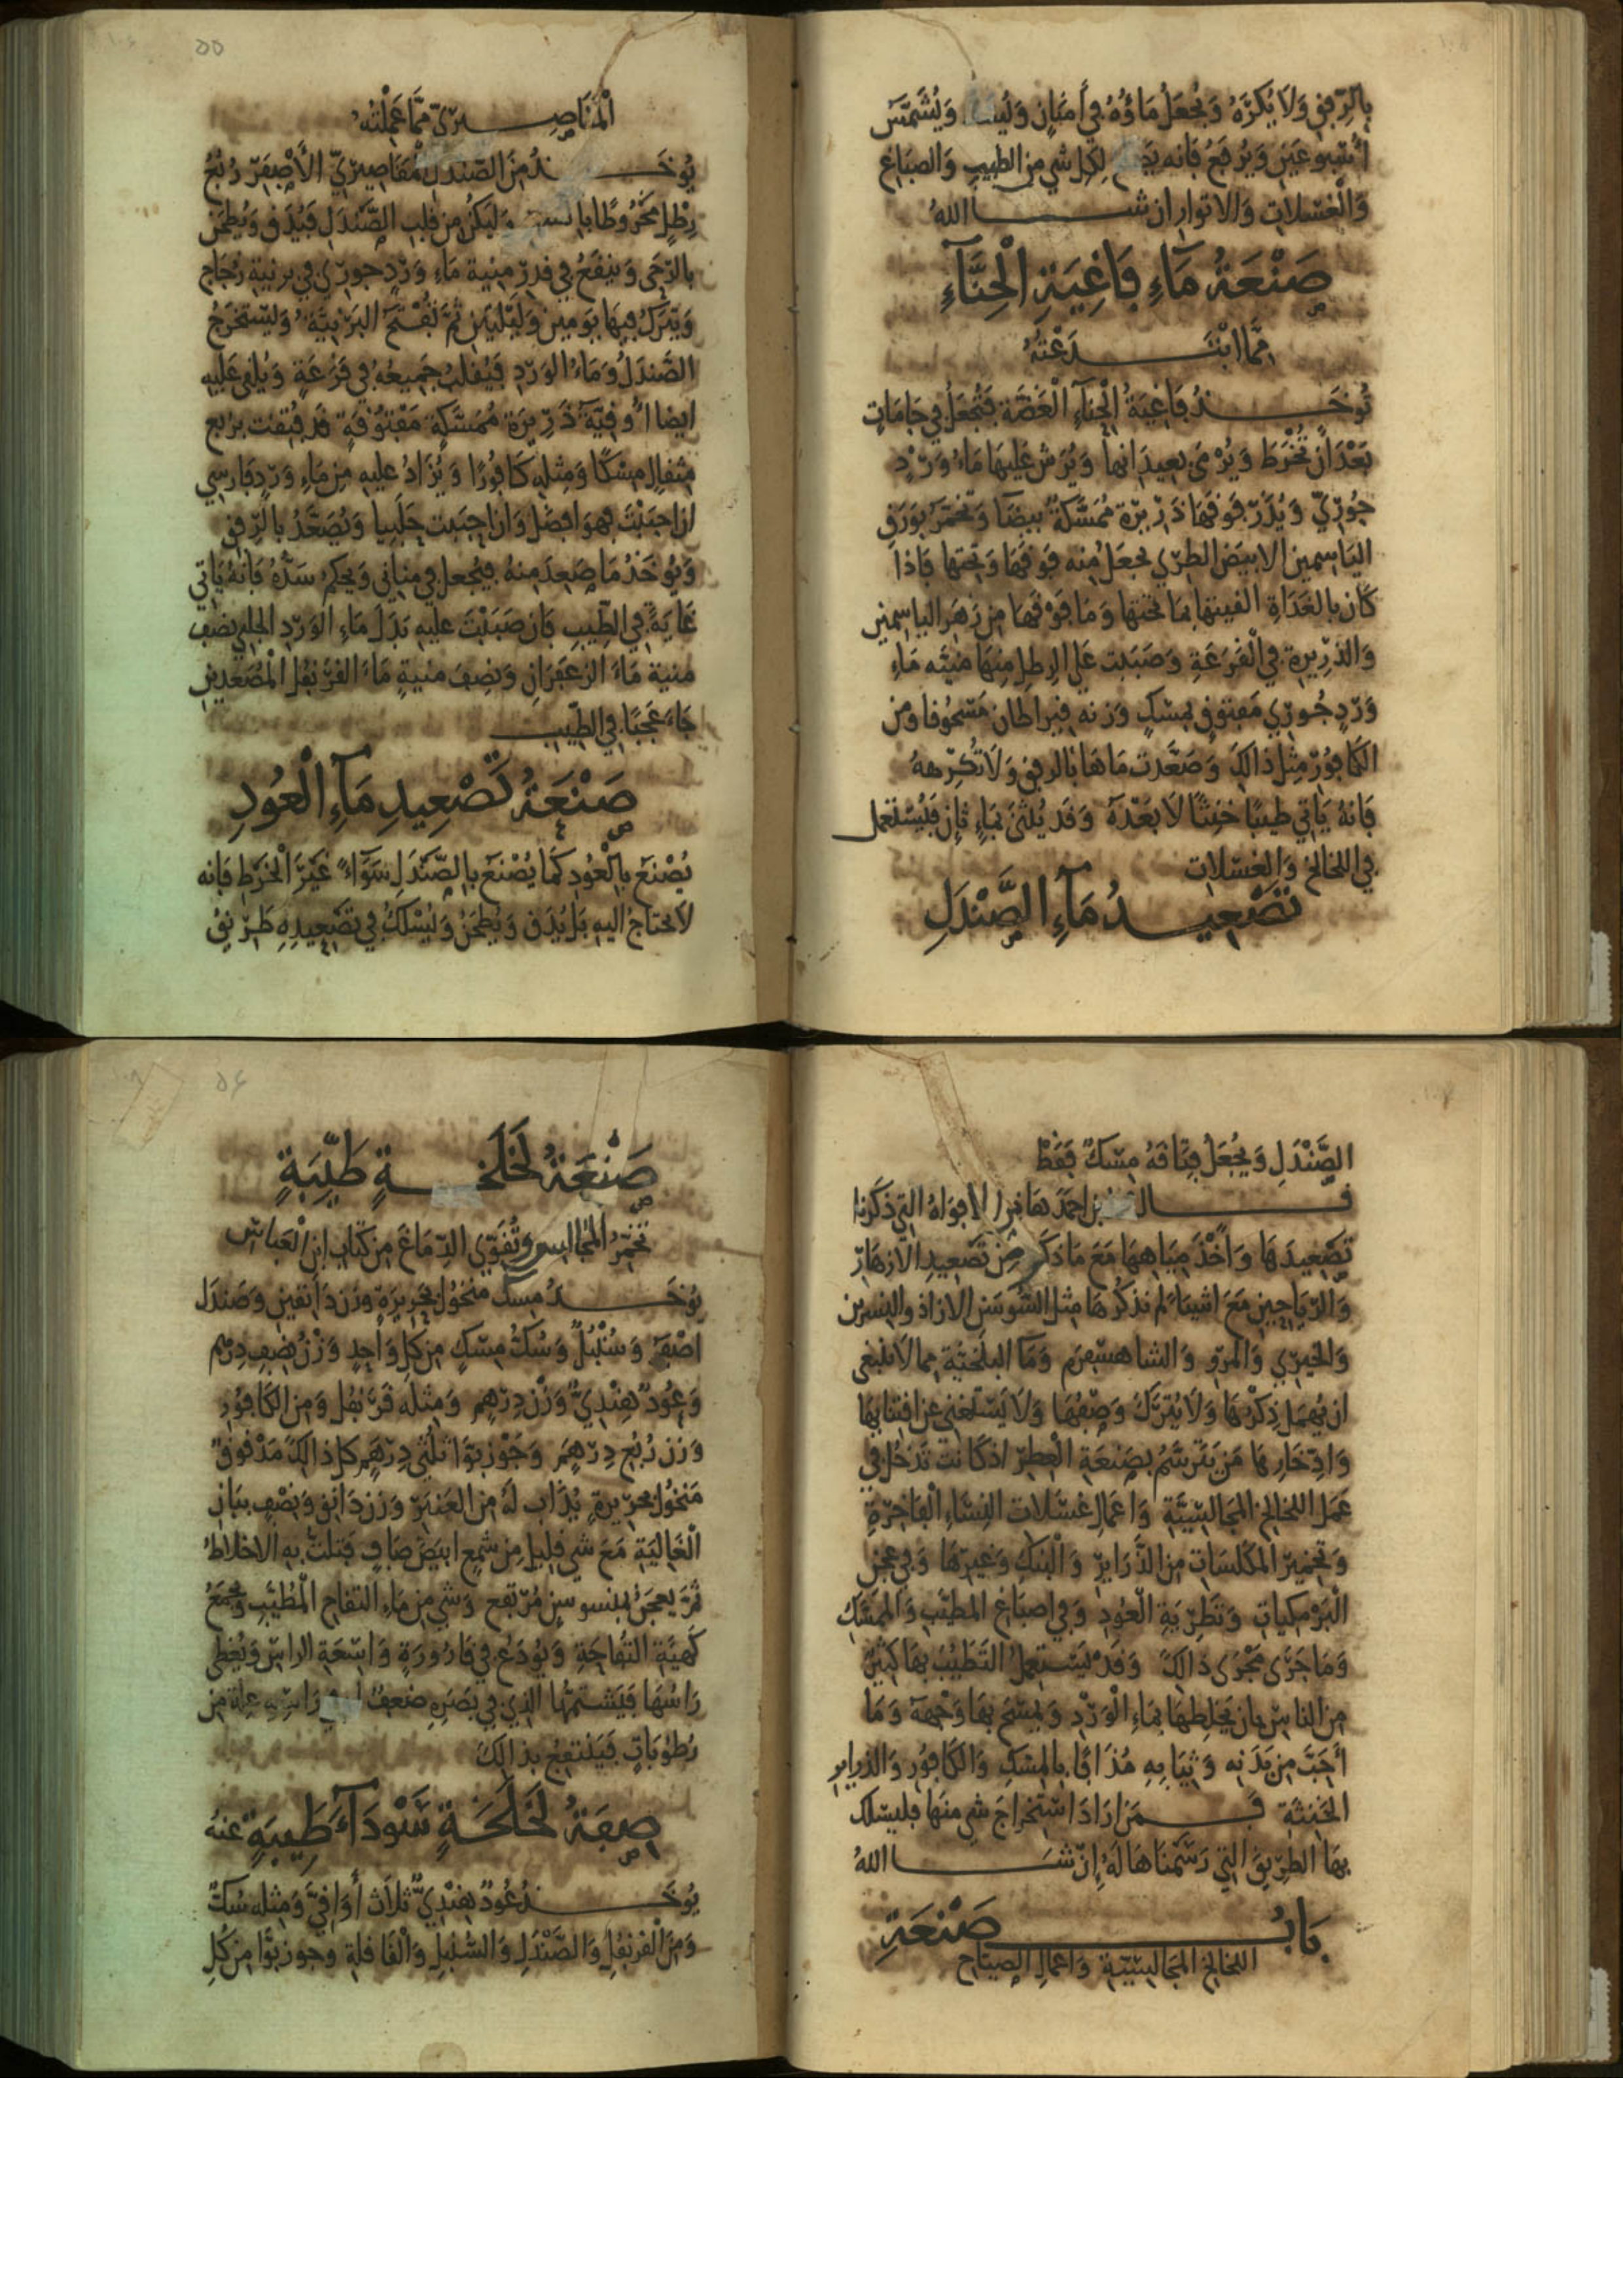 بالرفق ولا يكرّه ويجعل ماؤه في أمنان ويشمس
أسبوعين ويرفع فانه لكل شي من الطيب والصباغ
والغسلات والاتوار ان شا الله
صنعة ماء فاغية الحناء
مما ابتدعته
توخذ فاغية الحناء الغضة فتجعل في جامات
بعد ان تخرط ويرمى بعيدانها ويرش عليها ماء ورد
جوري ويذر فوقها ذريرة ممسكة بيضا وتخمر بورق
الياسمين الابيض الطري يجعل منه فوقها وتحتها فاذا
كان بالغداة القيتها بما تحتها وما فوقها من زهر الياسمين
والذريرة في القرعة وصببت على الرطل منها منيه ماء
ورد جوري مفتوق بمسك وزنه قيراطان مسحوقا ومن
الكافور مثل ذالك وصعدت ماها بالرفق ولا تكرهه
فانه ياتي طيبا خنثا لا بعده وقد يثنى بماء ثان فليستعمل
في اللخالخ والغسلات
تصعيد ماء الصندل
المقاصيري مما عملته
يوخذ من الصندل المقاصيري الأصفر ربع
رطل مخروطا وليكن من قلب الصندل فيدق ويطحن
بالرحى وينقع في قدر منية ماء ورد جوري في برنية زجاج
ويترك فيها يومين وليلتين ثم تفتح البرنية وليستخرج
الصندل وماء الورد فيقلب جميعه في قرعة ويلقى عليه
ايضا أوقية ذريرة ممسكة مفتوقة قد فتقت بربع
مثقال مسكا ومثله كافورا ويزاد عليه من ماء ورد فارسي
ان احببت فهو افضل وان احببت حلبيا ويصعد بالرفق
ويوخذ ما صعد منه فيجعل في مناني ويحكم سده فانه ياتي
غاية في الطيب فان صببت عليه بدل ماء الورد الحلبي نصف
منية ماء الزعفران ونصف منية ماء القرنفل المصعدين
جاء عجبا في الطيب
صنعة تصعيد ماء العود
يصنع بالعود كما يصنع بالصندل سواء غير الخرط فانه
لا يحتاج اليه بل يدق ويطحن ويسلك في تصعيده طريق
الصندل ويجعل فتاقه مسك فقط
قال بن احمد هذا من الافواه التي ذكرنا
تصعيدها واخذ مياهها مع ما ذكر من تصعيد الازهار
والرياحين مع اشيا لم نذكرها مثل السوسن الازاذ والنسرين
والخيري والمرو والشاهسفرم وما البلخية مما لا ينبغي
ان يهمل ذكرها ولا يترك وصفها ولا يستغني عن اقتنايها
وادخارها من يترسم بصنعة العطر اذ كانت تدخل في
عمل اللخالخ المجالسية واعمال غسلات النساء الفاخرة
وتخمير المكلسات من الذراير والبنك وغيرها وفي عجن
البرمكيات وتطرية العود وفي اصباغ المطيب والممسك
وما جرى مجرى ذالك وقد يستعمل التطيب بها كثير
من الناس بان يخلطها بماء الورد ويمسح بها وجهه وما
أحب من بدنه وثيابه مذافا بالمسك والكافور والذراير
الخنثة فمن اراد استخراج شي منها فليسلك
بها الطريق التي رسمناها له إن شا الله
باب صنعة
اللخالخ المجالسية واعمال الصياح
صنعة لخلخة طيبة
تخمر المجالس وتقوي الدماغ من كتاب ابن العباس
يوخذ مسك منخول بحريرة وزن دانقين وصندل
اصفر وسنبل وسك مسك من كل واحد وزن نصف درهم
وعود هندي وزن درهم ومثله قرنفل ومن الكافور
وزن ربع درهم وجوزبوا ثلثي درهم كل ذالك مدقوق
منخول بحريرة يذاب له من العنبر وزن دانق ونصف ببان
الغالية مع شي قليل من شمع ابيض صاف فتلت به الاخلاط
ثم يعجن بميسوسن مرتفع وشي من ماء التفاح المطيب ويجمع
كهية التفاحة ويودع في قارورة واسعة الراس ويغطى
راسها فيشتمها الذي في بصره ضعف راسه علة من
رطوبات فينتفع بذالك
صفة لخلخة سوداء طيبة عنه
يوخذ عود هندي ثلاث أواقي ومثله سك
ومن القرنفل والصندل والسنبل والقاقلة وجوزبوا من كل